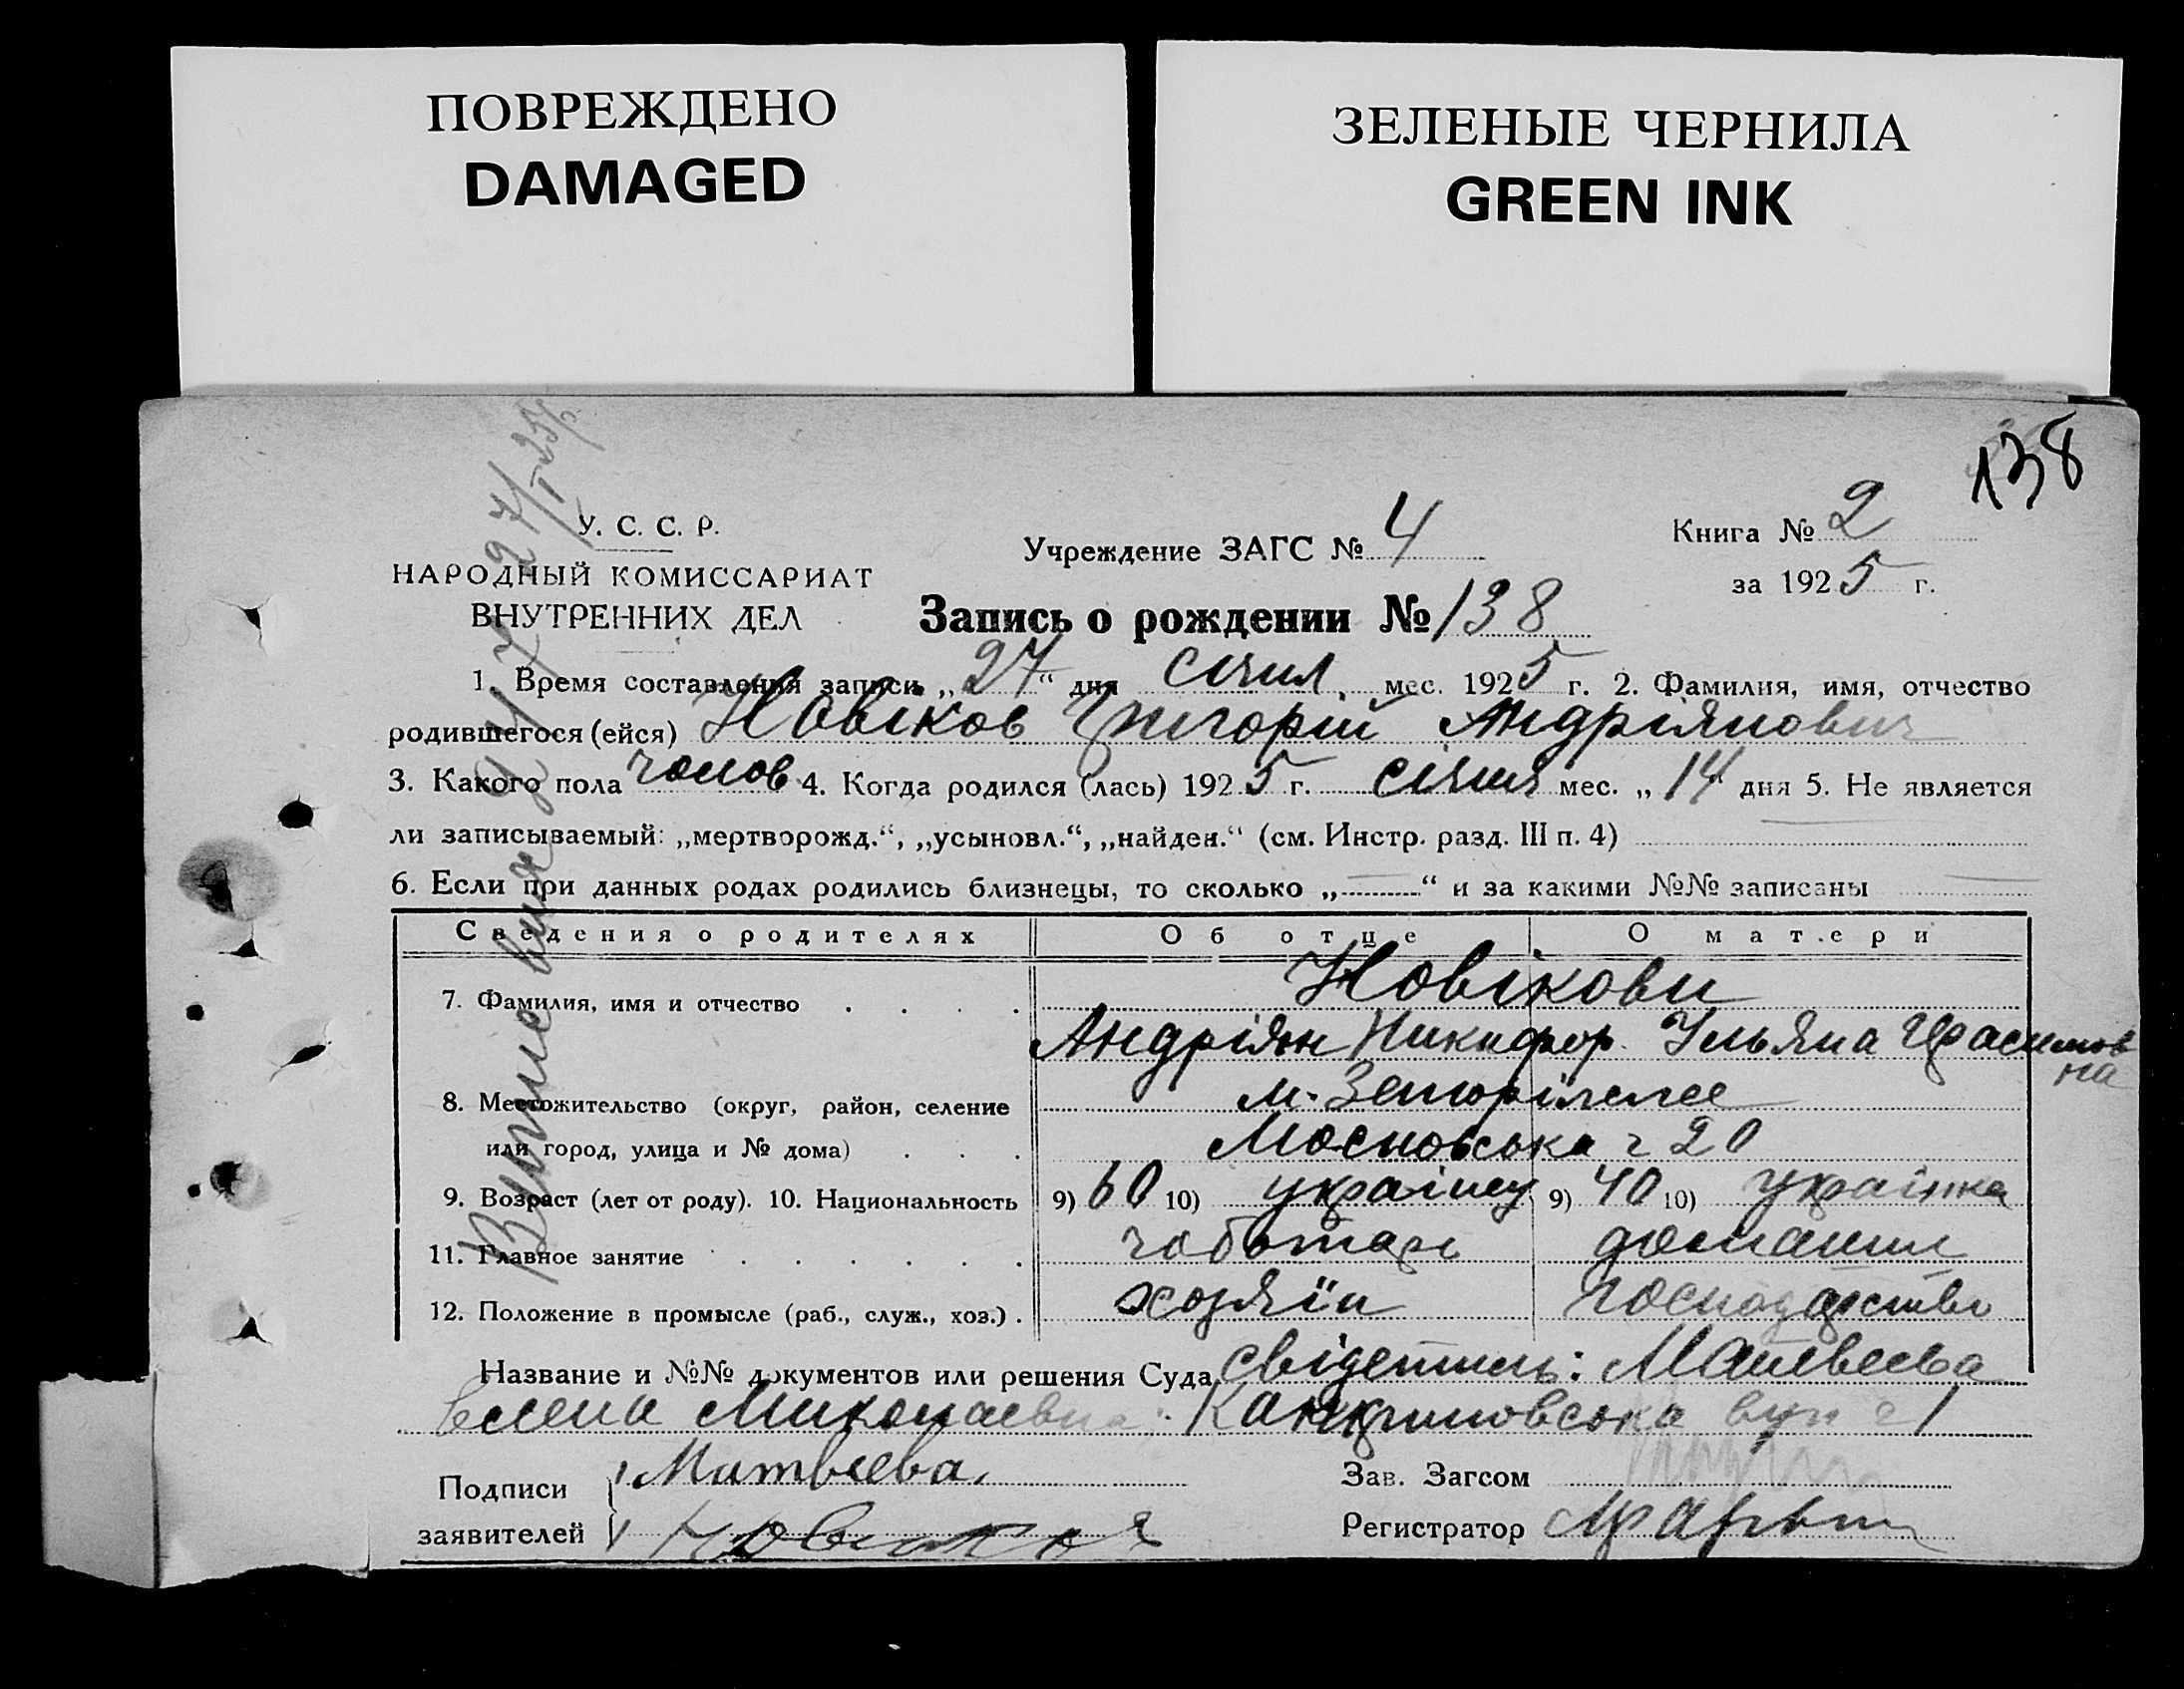 ПОВРЕЖДЕНО
DAMAGED
ЗЕЛЕНЫЕ ЧЕРНИЛА
GREEN INK
138
У. С. С. Р.
НАРОДНЫЙ КОМИССАРИАТ
ВНУТРЕННИХ ДЕЛ
Учреждение ЗАГС № 4
Книга № 2
за 1925 г.
Запись о рождении № 138
1. Время составления записи „27“ дня січня мес. 1925 г. 2. Фамилия, имя, отчество
родившегося (ейся) Новіков Григорій Андріянович
3. Какого пола чолов. 4. Когда родился (лась) 1925 г. січня мес. „14“ дня 5. Не является
ли записываемый: „мертворожд.“, „усыновл.“, „найден.“ (см. Инстр. разд. III п. 4)
6. Если при данных родах родились близнецы, то сколько „—“ и за какими №№ записаны —
Сведения о родителях Об отце О матери
7. Фамилия, имя и отчество . . . . Новікови
Андріян Никифор. Ульяна Герасимов
на
8. Местожительство (округ, район, селение м.
или город, улица и № дома) . . . ч 20
9. Возраст (лет от роду). 10. Национальность 9) 60 10) українец 9) 40 10) українка
11. Главное занятие . . . . . . чоботарь домашнє
12. Положение в промысле (раб., служ., хоз.) . хозяїн господарство
Название и №№ документов или решения Суда свідетель: Матвеева
Елена Миколаевна:
Подписи Матвеева.
заявителей Новикоя
Зав. Загсом
Регистратор
27/I 25 р.